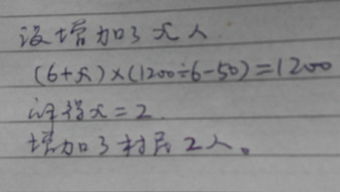 设增加了x人
(6+x)×(1200÷6-50)=1200
解得x=2.
增加了村民2人。